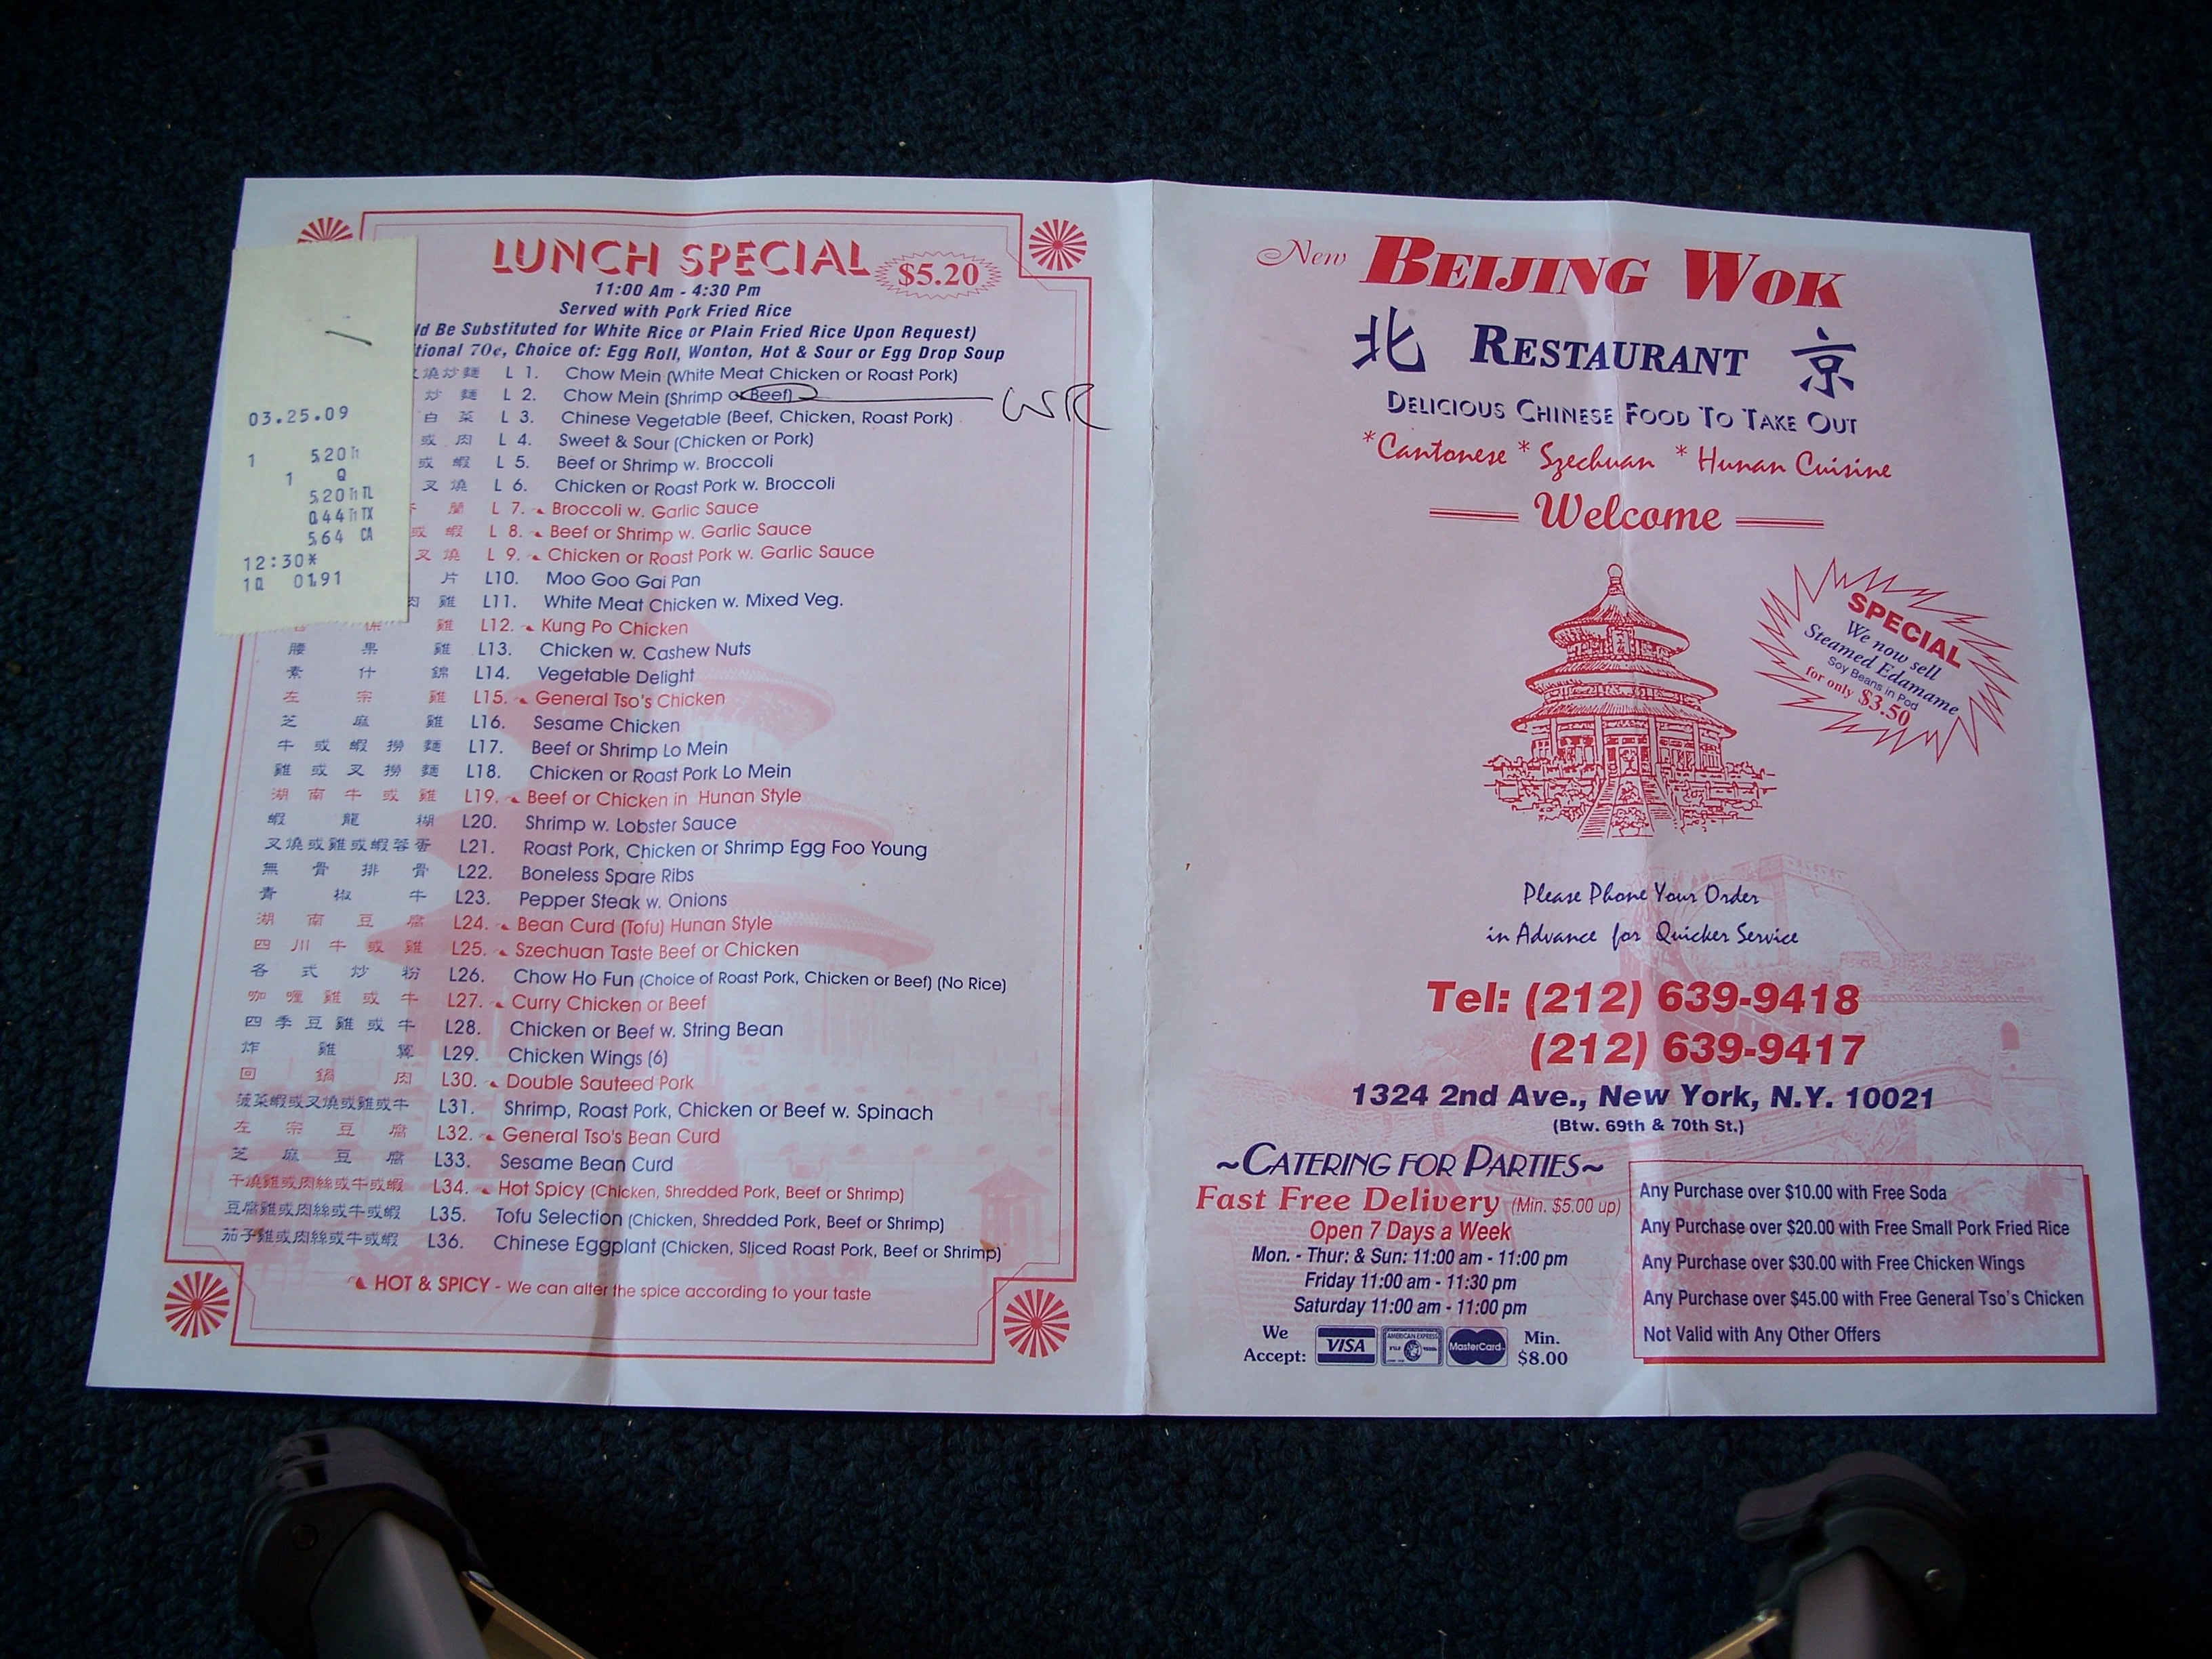 LUNCH SPECIAL $5.20
11:00 Am - 4:30 Pm
Served with Pork Fried Rice
ld Be Substituted for White Rice or Plain Fried Rice Upon Request)
tional 70¢, Choice of: Egg Roll, Wonton, Hot & Sour or Egg Drop Soup
燒炒麵 L 1. Chow Mein (White Meat Chicken or Roast Pork)
炒麵 L 2. Chow Mein (Shrimp or Beef) WR
白菜 L 3. Chinese Vegetable (Beef, Chicken, Roast Pork)
或肉 L 4. Sweet & Sour (Chicken or Pork)
或蝦 L 5. Beef or Shrimp w. Broccoli
叉燒 L 6. Chicken or Roast Pork w. Broccoli
蘭 L 7. Broccoli w. Garlic Sauce
或蝦 L 8. Beef or Shrimp w. Garlic Sauce
叉燒 L 9. Chicken or Roast Pork w. Garlic Sauce
片 L10. Moo Goo Gai Pan
肉雞 L11. White Meat Chicken w. Mixed Veg.
雞 L12. Kung Po Chicken
腰果雞 L13. Chicken w. Cashew Nuts
素什錦 L14. Vegetable Delight
左宗雞 L15. General Tso's Chicken
芝麻雞 L16. Sesame Chicken
牛或蝦撈麵 L17. Beef or Shrimp Lo Mein
雞或叉撈麵 L18. Chicken or Roast Pork Lo Mein
湖南牛或雞 L19. Beef or Chicken in Hunan Style
蝦龍糊 L20. Shrimp w. Lobster Sauce
叉燒或雞或蝦蓉蛋 L21. Roast Pork, Chicken or Shrimp Egg Foo Young
無骨排骨 L22. Boneless Spare Ribs
青椒牛 L23. Pepper Steak w. Onions
湖南豆腐 L24. Bean Curd (Tofu) Hunan Style
四川牛或雞 L25. Szechuan Taste Beef or Chicken
各式炒粉 L26. Chow Ho Fun (Choice of Roast Pork, Chicken or Beef) (No Rice)
咖喱雞或牛 L27. Curry Chicken or Beef
四季豆雞或牛 L28. Chicken or Beef w. String Bean
炸雞翼 L29. Chicken Wings (6)
回鍋肉 L30. Double Sauteed Pork
菠菜蝦或叉燒或雞或牛 L31. Shrimp, Roast Pork, Chicken or Beef w. Spinach
左宗豆腐 L32. General Tso's Bean Curd
芝麻豆腐 L33. Sesame Bean Curd
干燒雞或肉絲或牛或蝦 L34. Hot Spicy (Chicken, Shredded Pork, Beef or Shrimp)
豆腐雞或肉絲或牛或蝦 L35. Tofu Selection (Chicken, Shredded Pork, Beef or Shrimp)
茄子雞或肉絲或牛或蝦 L36. Chinese Eggplant (Chicken, Sliced Roast Pork, Beef or Shrimp)
HOT & SPICY - We can alter the spice according to your taste
03.25.09
1 5.20 T1
1 Q
5.20 T1 TL
0.44 T1 TX
5.64 CA
12:30*
1Q 01.91
New BEIJING WOK
北 RESTAURANT 京
DELICIOUS CHINESE FOOD TO TAKE OUT
*Cantonese *Szechuan *Hunan Cuisine
Welcome
SPECIAL
We now sell
Steamed Edamame
Soy Beans in Pod
for only $3.50
Please Phone Your Order
in Advance for Quicker Service
Tel: (212) 639-9418
(212) 639-9417
1324 2nd Ave., New York, N.Y. 10021
(Btw. 69th & 70th St.)
~CATERING FOR PARTIES~
Fast Free Delivery (Min. $5.00 up)
Open 7 Days a Week
Mon. - Thur: & Sun: 11:00 am - 11:00 pm
Friday 11:00 am - 11:30 pm
Saturday 11:00 am - 11:00 pm
We Accept: VISA AMERICAN EXPRESS MasterCard Min. $8.00
Any Purchase over $10.00 with Free Soda
Any Purchase over $20.00 with Free Small Pork Fried Rice
Any Purchase over $30.00 with Free Chicken Wings
Any Purchase over $45.00 with Free General Tso's Chicken
Not Valid with Any Other Offers